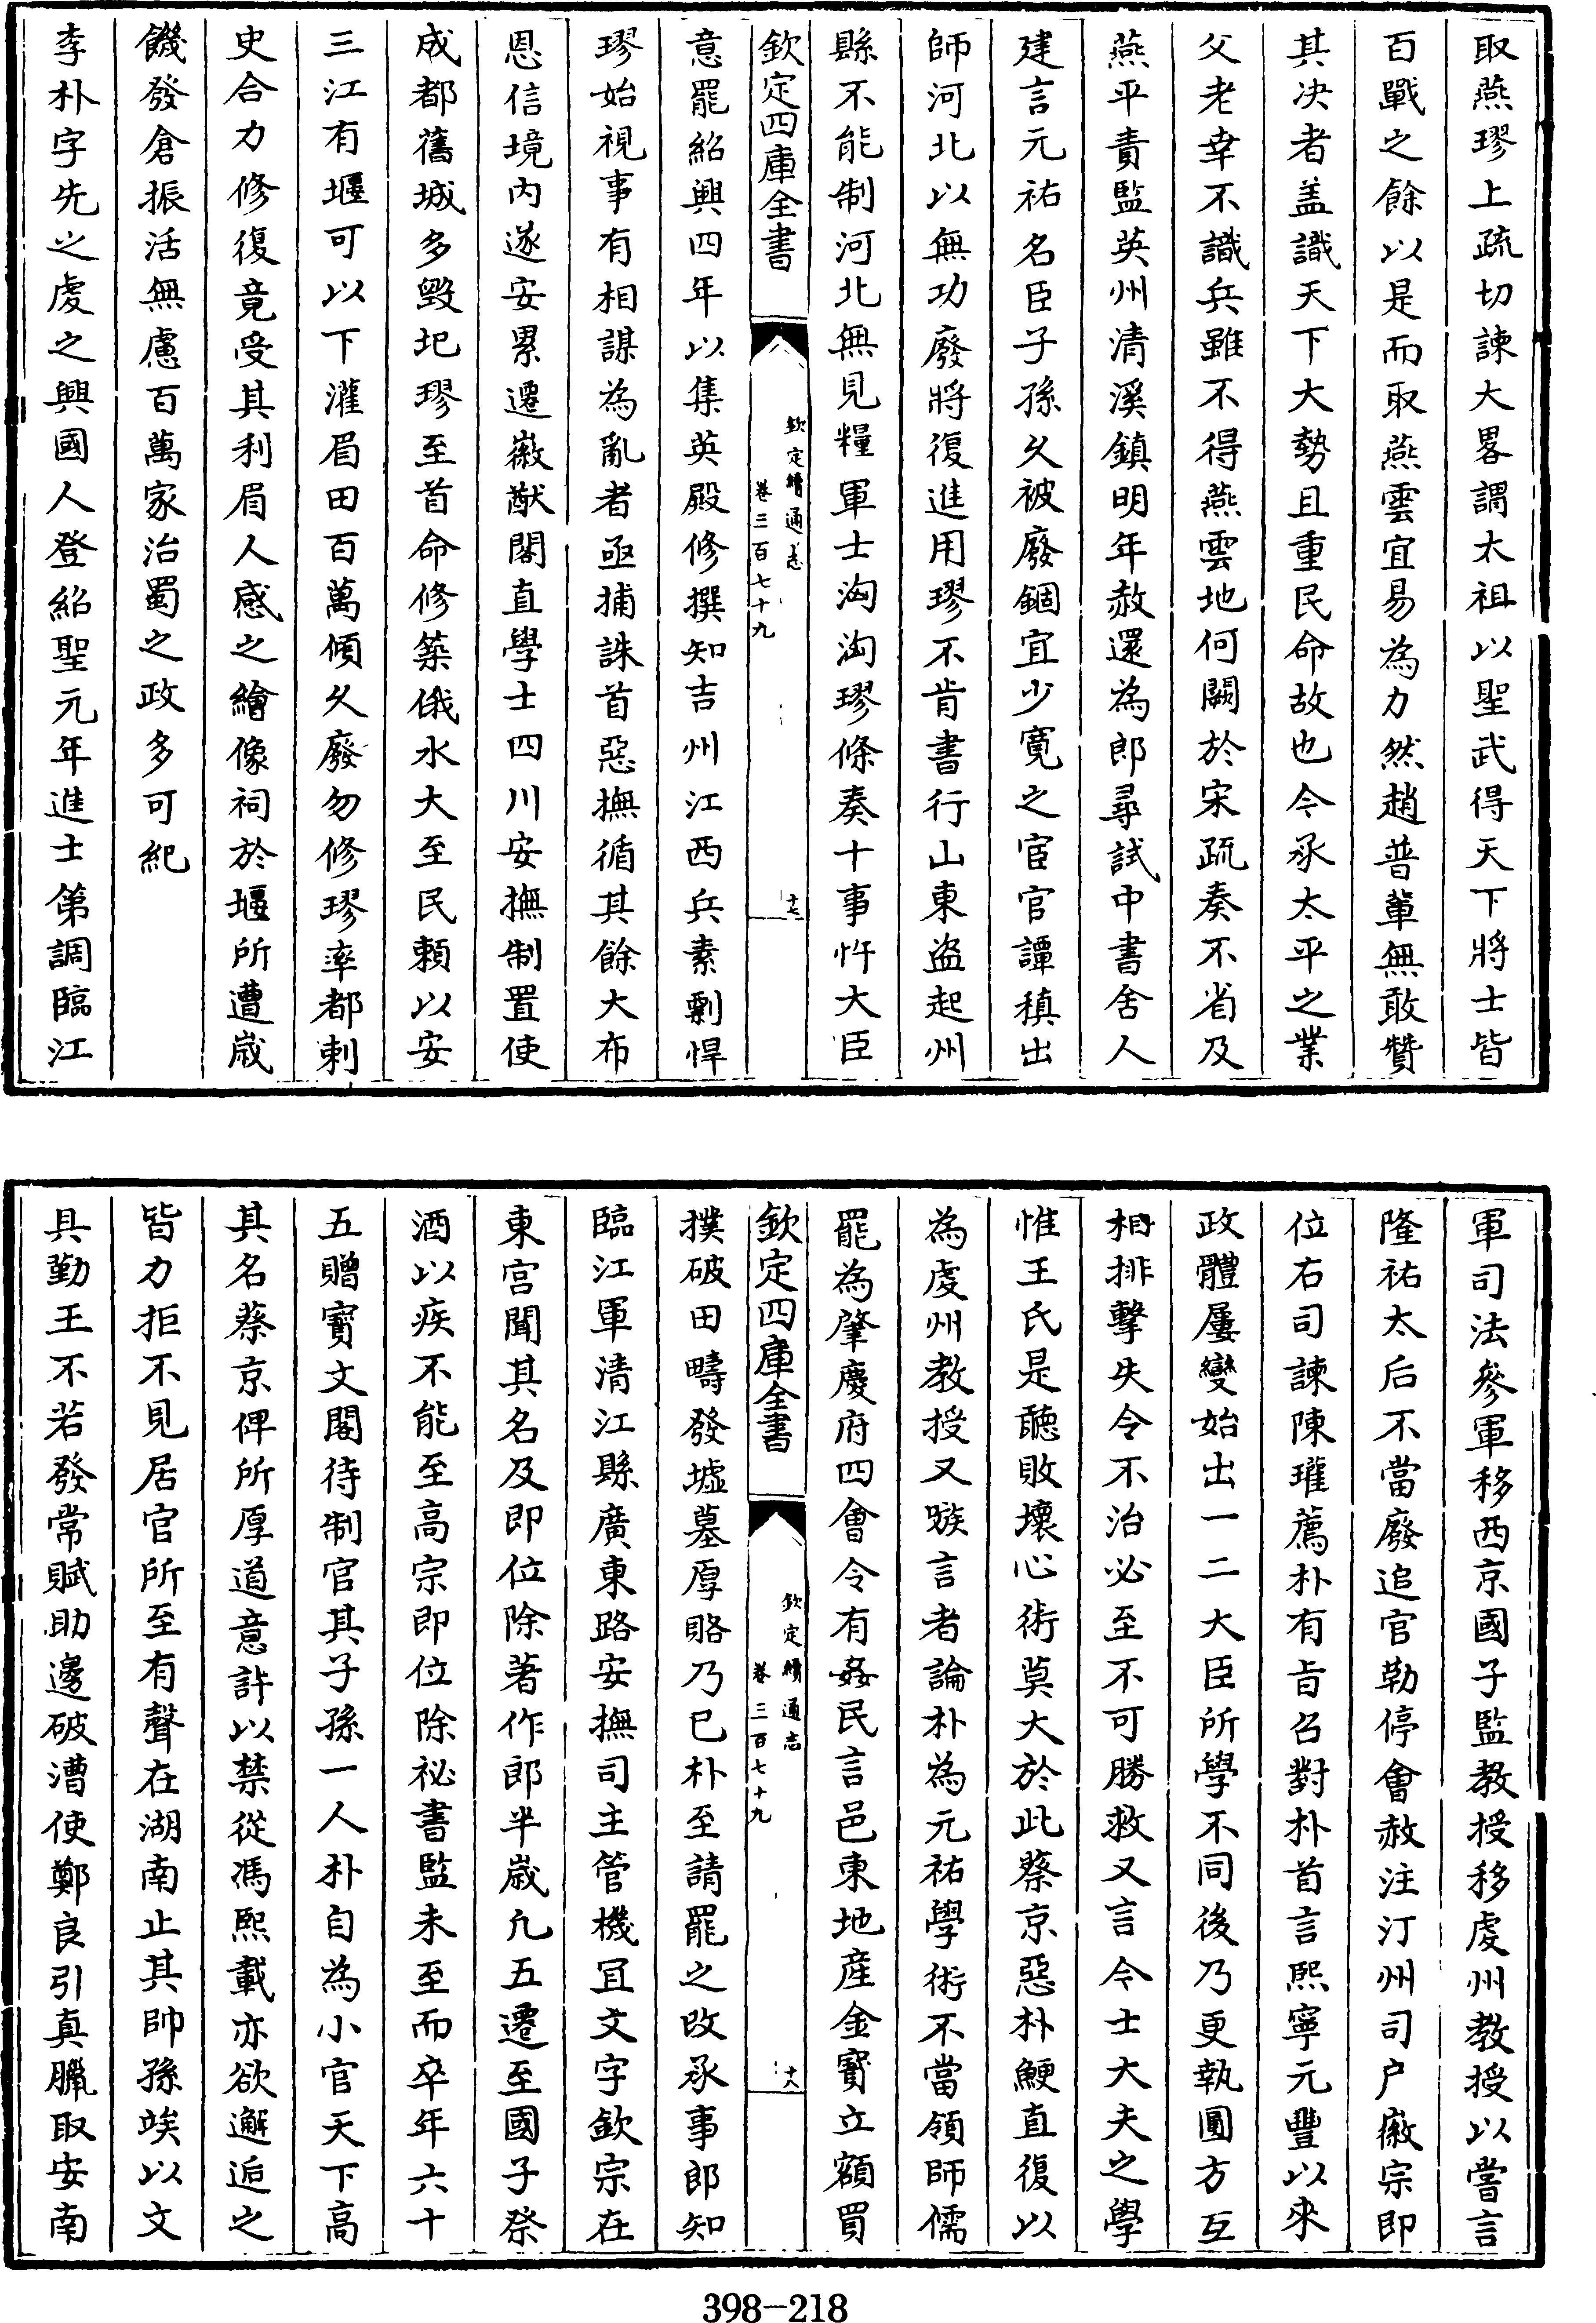 取燕璆上疏切諫大畧謂太祖以聖武得天下將士皆
百戰之餘以是而取燕雲宜易為力然趙普輩無敢贊
其决者盖識天下大勢且重民命故也今承太平之業
父老幸不識兵雖不得燕雲地何闕於宋疏奏不省及
燕平責監英州清溪鎮明年赦還為郎尋試中書舍人
建言元祐名臣子孫久被廢錮宜少寛之宦官譚稹出
師河北以無功廢將復進用璆不肯書行山東盗起州
縣不能制河北無見糧軍士洶洶璆條奏十事忤大臣
欽定四庫全書
欽定續通志
卷三百七十九
十七
意罷紹興四年以集英殿修撰知吉州江西兵素剽悍
璆始視事有相謀為亂者亟捕誅首惡撫循其餘大布
恩信境内遂安累遷徽猷閣直學士四川安撫制置使
成都舊城多毁圯璆至首命修築俄水大至民頼以安
三江有堰可以下灌眉田百萬傾久廢勿修璆率都刺
史合力修復竟受其利眉人感之繪像祠於堰所遭歲
饑發倉振活無慮百萬家治蜀之政多可紀
李朴字先之虔之興國人登紹聖元年進士第調臨江
軍司法參軍移西京國子監教授移虔州教授以嘗言
隆祐太后不當廢追官勒停會赦注汀州司户徽宗即
位右司諫陳瓘薦朴有旨召對朴首言熙寧元豐以來
政體屢變始出一二大臣所學不同後乃更執圓方互
相排擊失今不治必至不可勝救又言今士大夫之學
惟王氏是聽敗壞心術莫大於此蔡京惡朴鯁直復以
為虔州教授又嗾言者論朴為元祐學術不當領師儒
罷為肇慶府四會令有姦民言邑東地産金寳立額買
欽定四庫全書
欽定續通志
卷三百七十九
十八
撲破田疇發墟墓厚賂乃已朴至請罷之改承事郎知
臨江軍清江縣廣東路安撫司主管機宜文字欽宗在
東宫聞其名及即位除著作郎半歲凡五遷至國子祭
酒以疾不能至高宗即位除祕書監未至而卒年六十
五贈寳文閣待制官其子孫一人朴自為小官天下高
其名蔡京俾所厚道意許以禁從馮熙載亦欲邂逅之
皆力拒不見居官所至有聲在湖南止其帥孫竢以文
具勤王不若發常賦助邊破漕使鄭良引真臘取安南
398-218